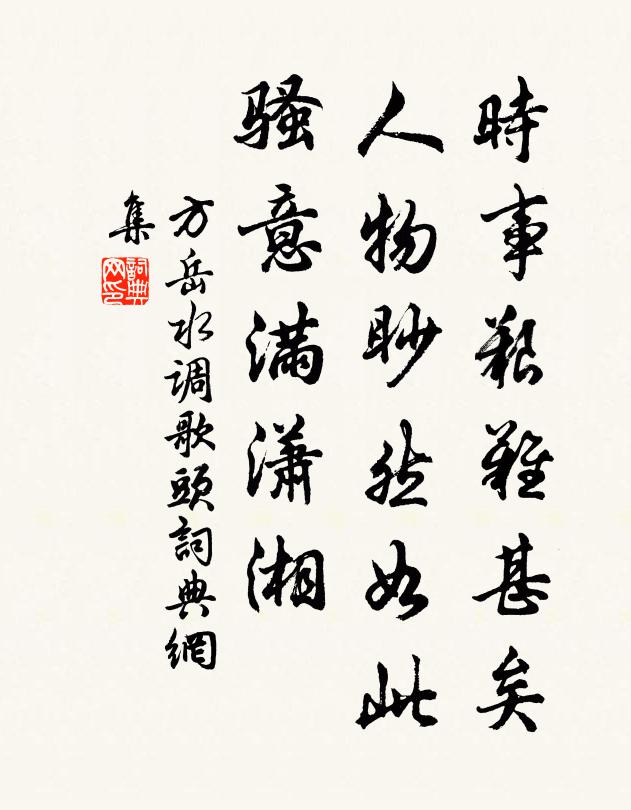 時事艱難甚矣
人物眇然如此
騷意滿瀟湘
方岳水调歌頭詞典網
集
詞典网印